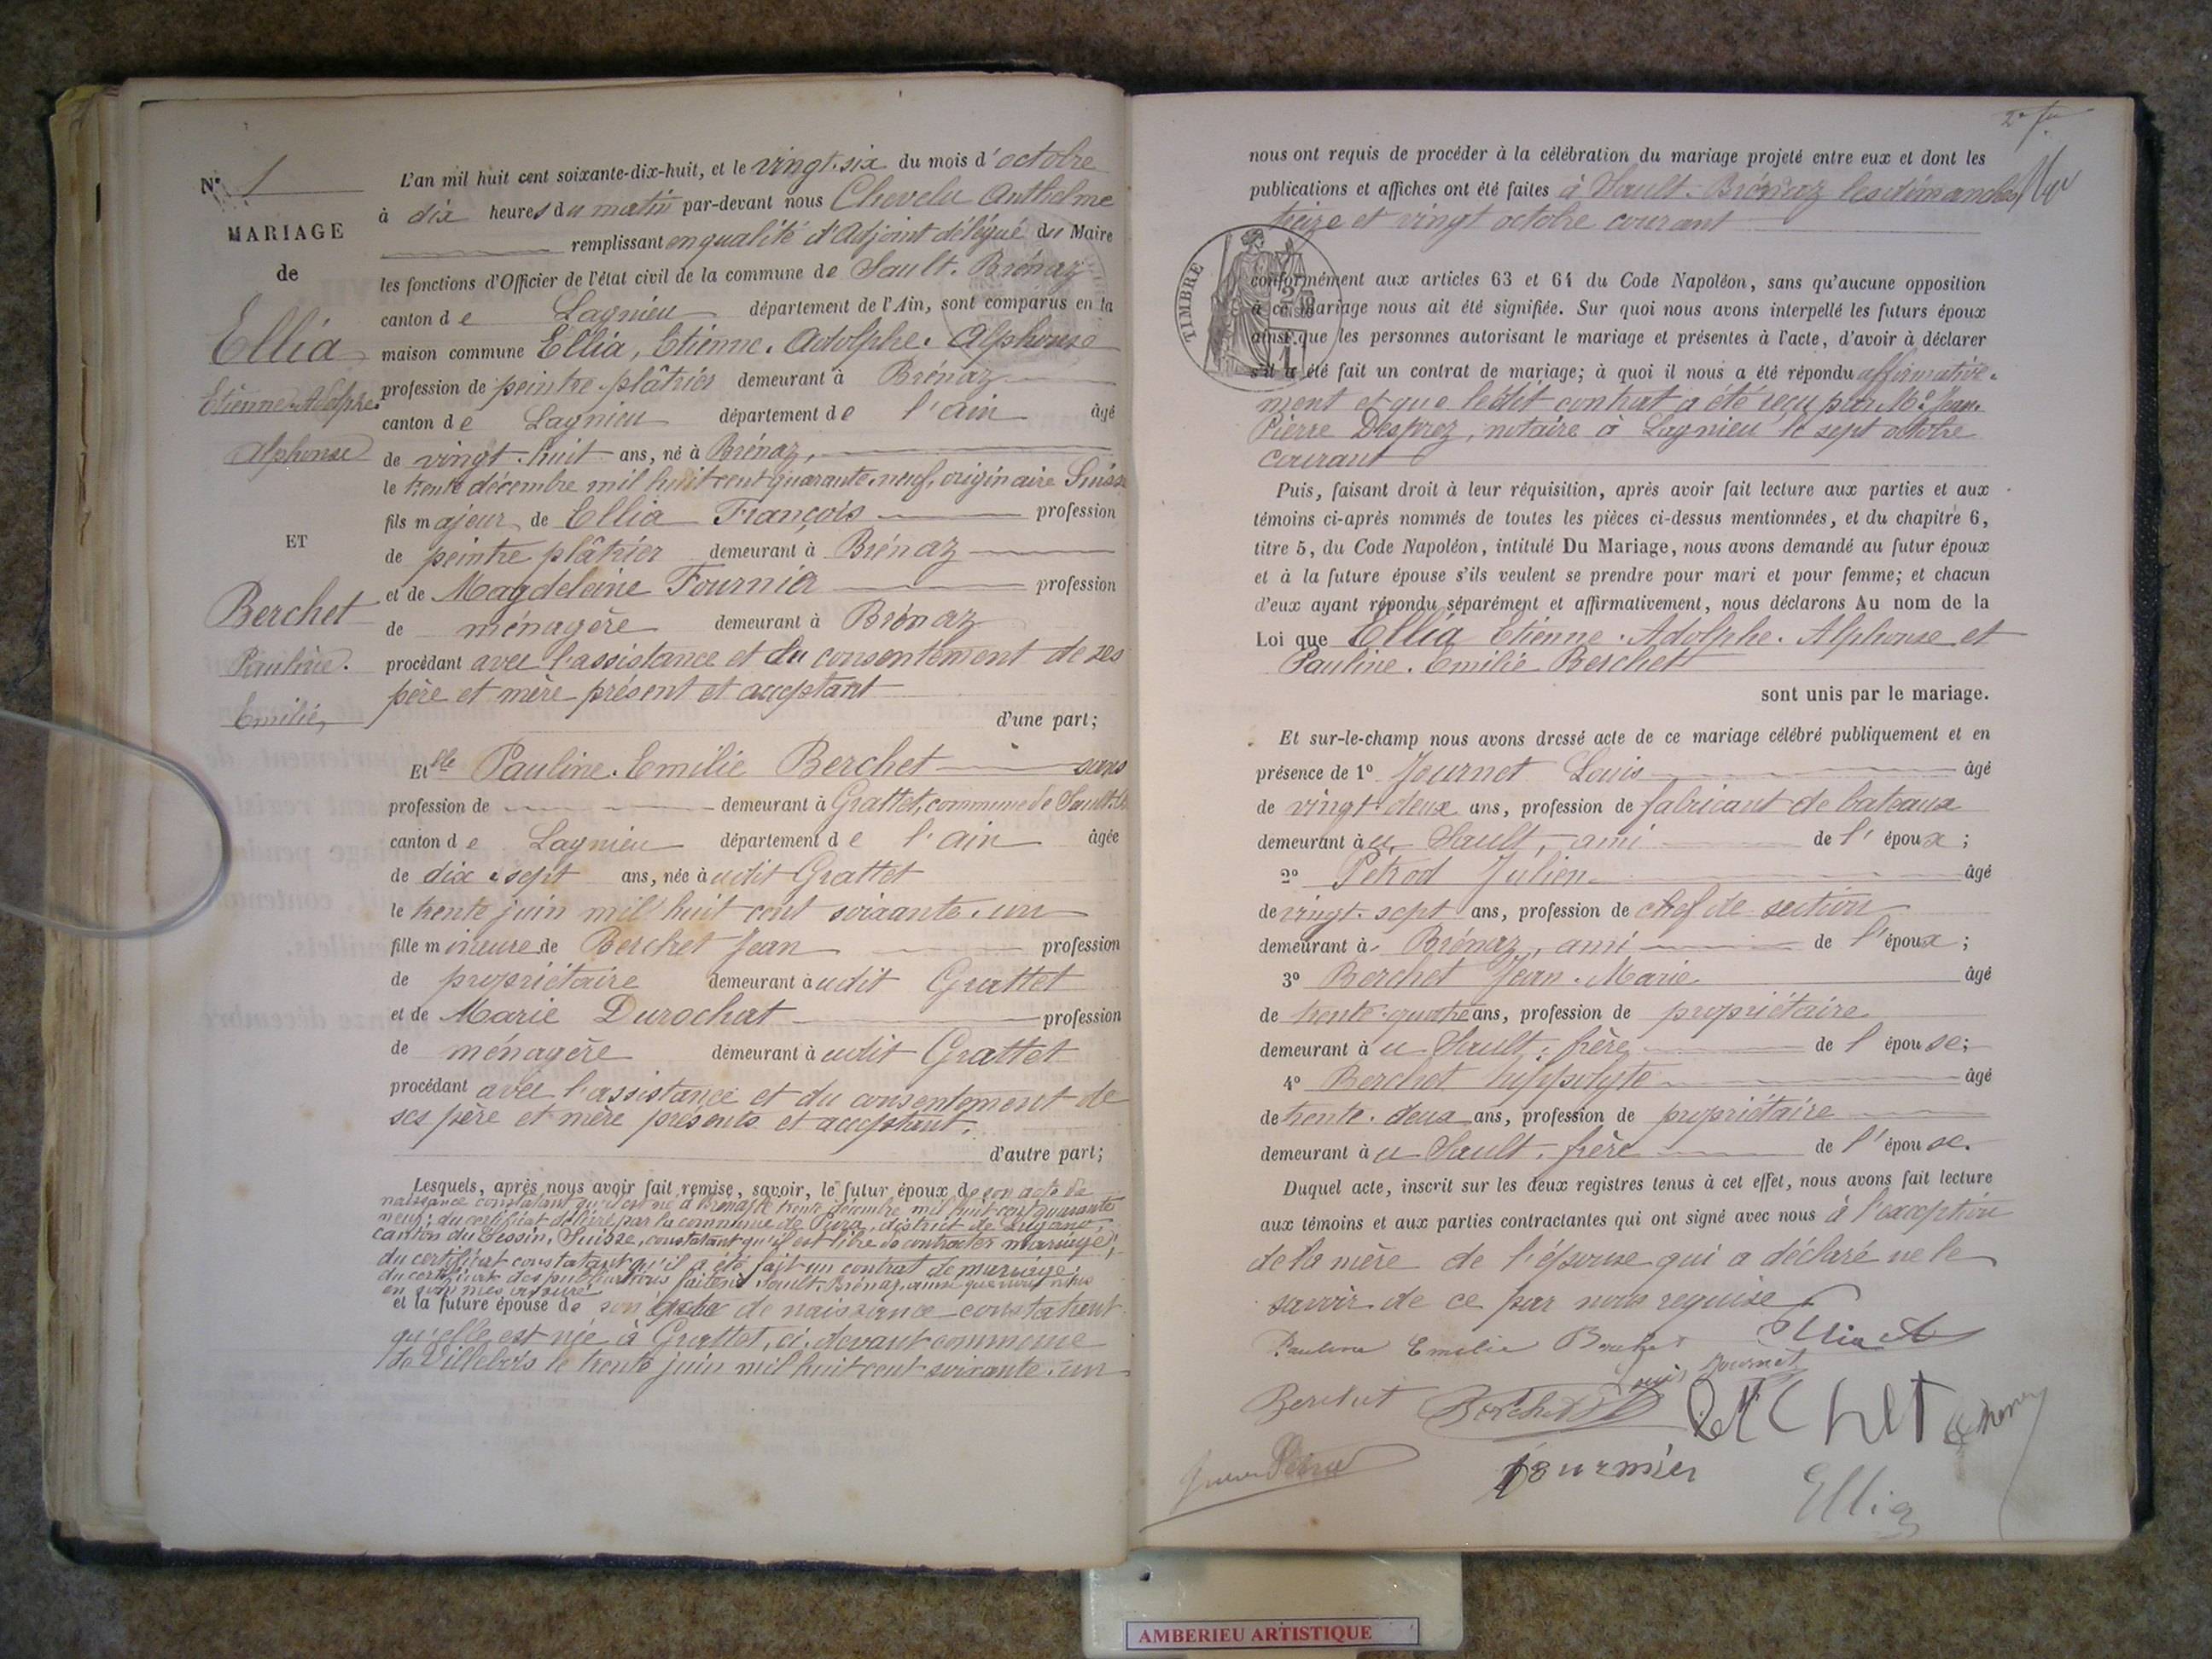 N° 1
MARIAGE
de
Ellia
Etienne. Adolphe.
Alphonse
ET
Berchet
Pauline.
Emilie,
L'an mil huit cent soixante-dix-huit, et le vingt-six du mois d'octobre
à dix heures du matin par-devant nous Chevelu Anthelme
remplissant en qualité d'Adjoint délégué du Maire
les fonctions d'Officier de l'état civil de la commune de Sault-Brénaz
canton de Lagnieu département de l'Ain, sont comparus en la
maison commune Ellia, Etienne. Adolphe. Alphonse
profession de peintre-plâtrier demeurant à Brénaz
canton de Lagnieu département de l'ain âgé
de vingt-huit ans, né à Brénaz,
le trente décembre mil huit cent quarante-neuf, originaire Suisse
fils majeur de Ellia François profession
de peintre plâtrier demeurant à Brénaz
et de Magdeleine Fournier profession
de ménagère demeurant à Brénaz
procédant avec l'assistance et du consentement de ses
père et mère présent et acceptant
d'une part;
Et lle Pauline. Emilie Berchet sans
profession de demeurant à Grattet, commune de Sault-
canton de Lagnieu département de l'ain âgée
de dix-sept ans, née audit Grattet
le trente juin mil huit cent soixante-un
fille mineure de Berchet Jean profession
de propriétaire demeurant audit Grattet
et de Marie Durochat profession
de ménagère demeurant audit Grattet
procédant avec l'assistance et du consentement de
ses père et mère présents et acceptant.
d'autre part;
Lesquels, après nous avoir fait remise, savoir, le futur époux de son acte de
naissance constatant qu'il est né à Brénaz le trente décembre mil huit cent quarante
neuf; du certificat délivré par la commune de Pura, district de Lugano,
canton du Tessin, Suisse, constatant qu'il est libre de contracter mariage;
du certificat constatant qu'il a été fait un contrat de mariage;
du certificat des publications faites à Sault-Brénaz, ainsi que nous nous
en sommes assuré
et la future épouse de son acte de naissance constatant
qu'elle est née à Grattet, ci-devant commune
de Villebois le trente juin mil huit cent soixante-un
nous ont requis de procéder à la célébration du mariage projeté entre eux et dont les
publications et affiches ont été faites à Sault-Brénaz les dimanches
treize et vingt octobre courant
TIMBRE
conformément aux articles 63 et 64 du Code Napoléon, sans qu'aucune opposition
à ce mariage nous ait été signifiée. Sur quoi nous avons interpellé les futurs époux
ainsi que les personnes autorisant le mariage et présentes à l'acte, d'avoir à déclarer
s'il a été fait un contrat de mariage; à quoi il nous a été répondu affirmative-
ment et que ledit contrat a été reçu par Me Jean-
Pierre Desprez, notaire à Lagnieu le sept octobre
courant
Puis, faisant droit à leur réquisition, après avoir fait lecture aux parties et aux
témoins ci-après nommés de toutes les pièces ci-dessus mentionnées, et du chapitre 6,
titre 5, du Code Napoléon, intitulé Du Mariage, nous avons demandé au futur époux
et à la future épouse s'ils veulent se prendre pour mari et pour femme; et chacun
d'eux ayant répondu séparément et affirmativement, nous déclarons Au nom de la
Loi que Ellia Etienne. Adolphe. Alphonse et
Pauline. Emilie Berchet
sont unis par le mariage.
Et sur-le-champ nous avons dressé acte de ce mariage célébré publiquement et en
présence de 1° Journet Louis âgé
de vingt-deux ans, profession de fabricant de bateaux
demeurant au Sault, ami de l'époux;
2° Pétrod Julien âgé
de vingt-sept ans, profession de chef de section
demeurant à Brénaz, ami de l'époux;
3° Berchet Jean-Marie âgé
de trente-quatre ans, profession de propriétaire
demeurant au Sault, frère de l'épouse;
4° Berchet hippolyte âgé
de trente-deux ans, profession de propriétaire
demeurant au Sault, frère de l'épouse.
Duquel acte, inscrit sur les deux registres tenus à cet effet, nous avons fait lecture
aux témoins et aux parties contractantes qui ont signé avec nous à l'exception
de la mère de l'épouse qui a déclaré ne le
savoir de ce par nous requise
Pauline Emelie Berchet Ellia
Journet
Berchet Berchet
fournier
Ellia
AMBERIEU ARTISTIQUE